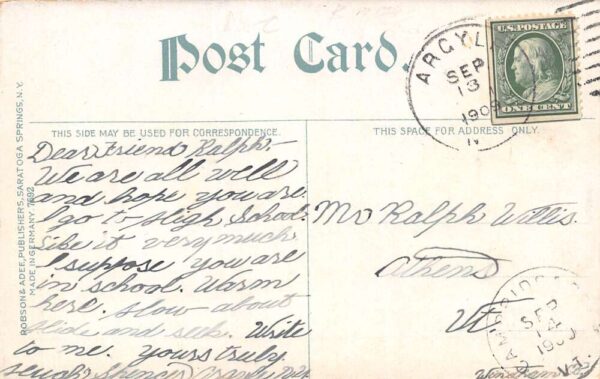 Post Card.
ARGYLE
SEP
13
1909
N
U.S. POSTAGE
ONE CENT
THIS SIDE MAY BE USED FOR CORRESPONDENCE.
THIS SPACE FOR ADDRESS ONLY.
ROBSON & ADEE, PUBLISHERS, SARATOGA SPRINGS, N.Y.
MADE IN GERMANY. 7692
Dear Friend Ralph,-
We are all well
and hope you are
I go to High School
like it very much
I suppose you are
in school. Warm
here. How about
slide and seek. Write
to me. Yours truly
Spencer
Mr Ralph Willis.
Athens
Vt.
CAMBRIDGE
SEP
14
1909
VT.
Windham Co.